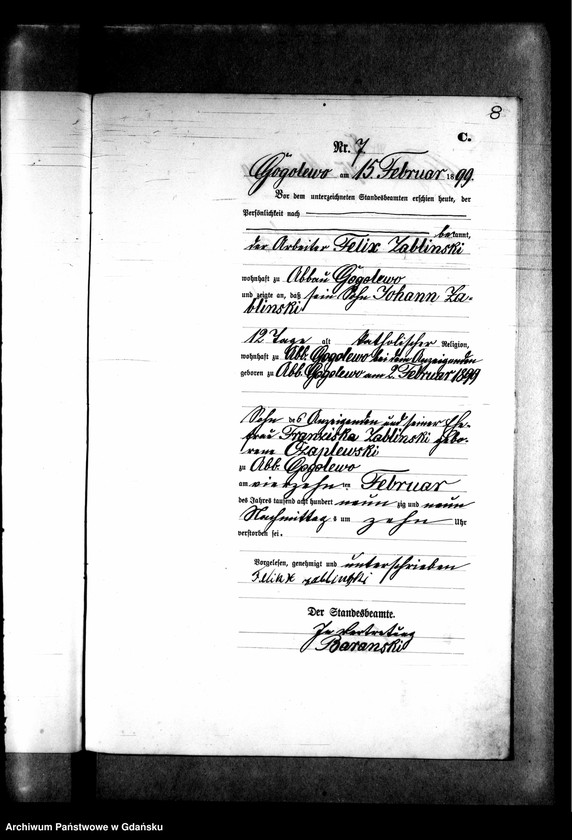 8
C.
Nr. 7
Gogolewo am 15 Februar 1899.
Vor dem unterzeichneten Standesbeamten erschien heute, der
Persönlichkeit nach
bekannt,
der Arbeiter Felix Zablinski
wohnhaft zu Abbau Gogolewo
und zeigte an, daß sein Sohn Johann Za-
blinski
12 Tage alt katholischer Religion,
wohnhaft zu Abb. Gogolewo bei dem Anzeigenden
geboren zu Abb. Gogolewo am 2. Februar 1899
Sohn des Anzeigenden und seiner Ehe-
frau Franziska Zablinski gebo-
rene Czaplewski
zu Abb. Gogolewo
am vierzehnten Februar
des Jahres tausend acht hundert neunzig und neun
Nachmittags um zehn Uhr
verstorben sei.
Vorgelesen, genehmigt und unterschrieben
Felix zablinski
Der Standesbeamte.
In Vertretung
Baranski
Archiwum Państwowe w Gdańsku